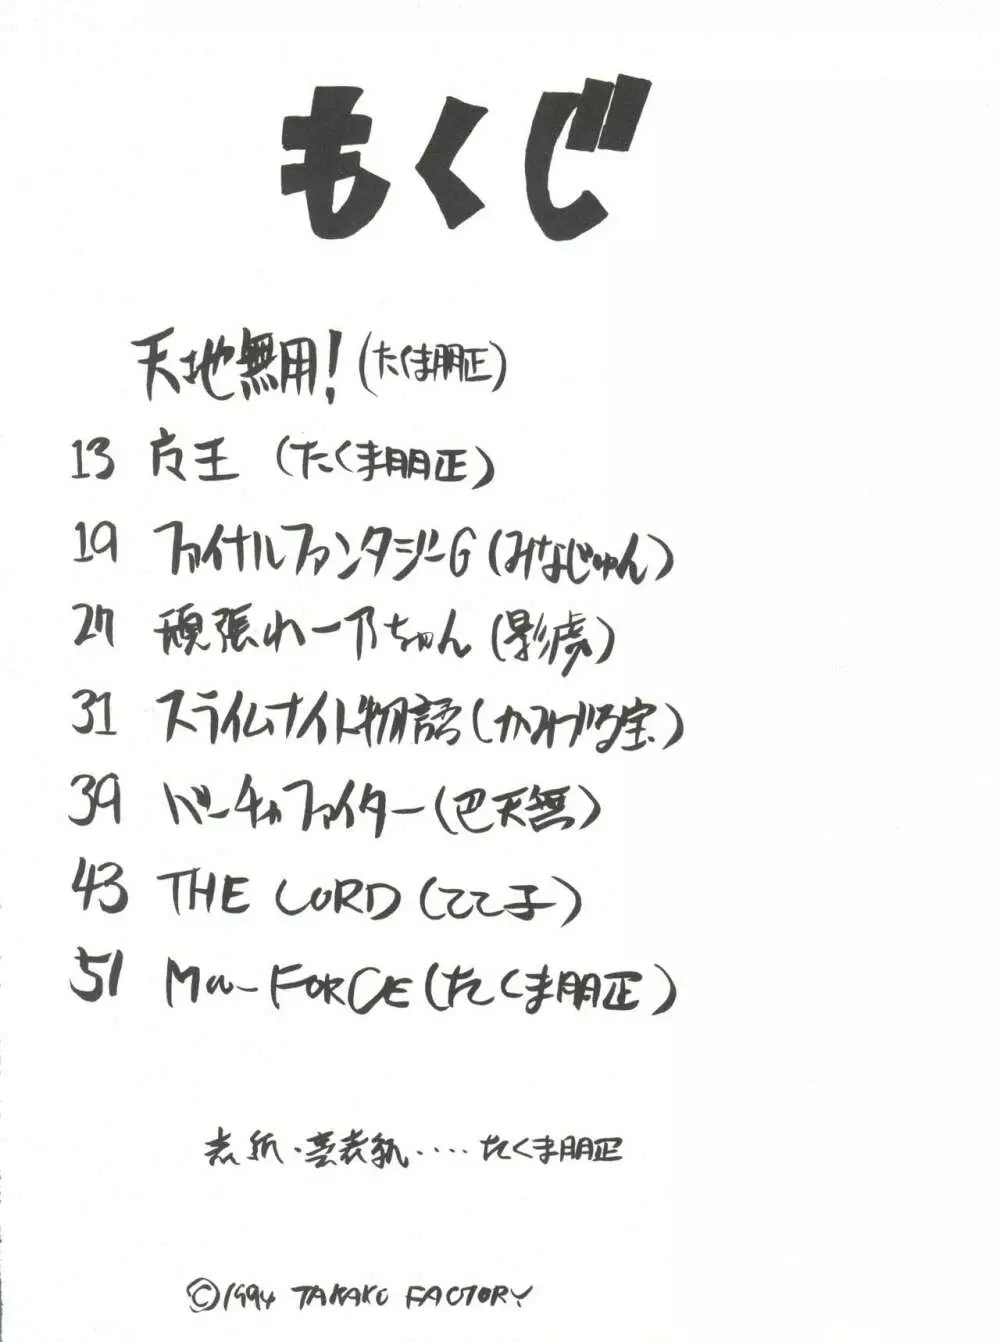 もくじ
天地無用!(たくま朋正)
13 方王 (たくま朋正)
19 ファイナルファンタジーG(みなじゅん)
27 頑張れ一乃ちゃん(影虎)
31 スライムナイト物語(かみづる宝)
39 バーチャファイター(巴天無)
43 THE LORD(てて子)
51 Mu-FORCE(たくま朋正)
表紙・裏表紙‥‥たくま朋正
©1994 TAKAKO FACTORY